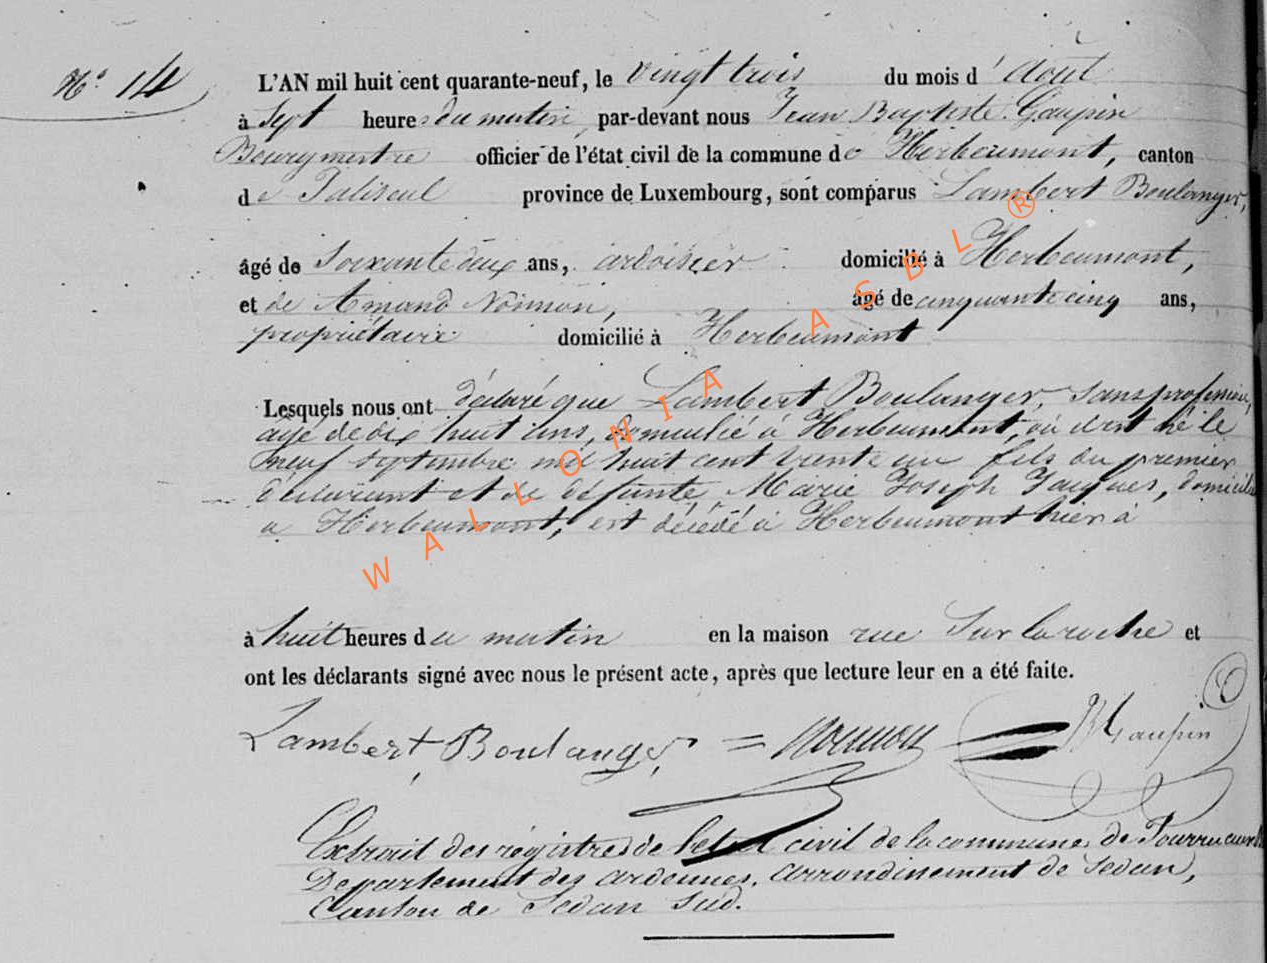 N° 14
L'AN mil huit cent quarante-neuf, le vingt trois du mois d'août
à sept heures du matin, par-devant nous Jean Baptiste Gaupin
Bourgmestre officier de l'état civil de la commune de Herbeumont, canton
de Paliseul province de Luxembourg, sont comparus Lambert Boulanger,
âgé de soixante deux ans, ardoisier domicilié à Herbeumont,
et de Amand Noirmon, âgé de cinquante cinq ans,
propriétaire domicilié à Herbeumont
Lesquels nous ont déclaré que Lambert Boulanger, sans profession,
agé de dix huit ans, domicilié à Herbeumont, où il est né le
neuf septembre mil huit cent trente un fils du premier
déclarant et de défunte Marie Joseph Jacques, domicilié
a Herbeumont, est décédé à Herbeumont hier à
à huit heures du matin en la maison rue Sur la roche et
ont les déclarants signé avec nous le présent acte, après que lecture leur en a été faite.
Lambert Boulanger = JB Gaupin
Extrait des régistres de l'etat civil de la commune de
Departement des ardennes, arrondissement de Sedan,
Canton de Sedan Sud.
WALLONIA ASBL ®